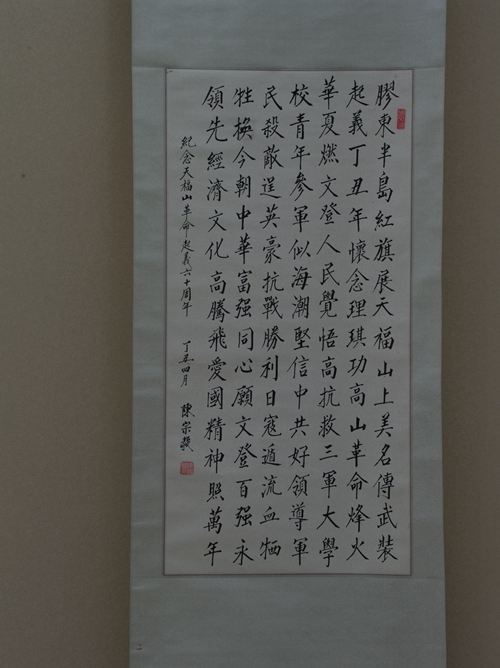 膠東半島紅旗展天福山上美名傳武裝
起義丁丑年懷念理琪功高山革命烽火
華夏燃文登人民覺悟高抗救三軍大學
校青年參軍似海潮堅信中共好領導軍
民殺敵逞英豪抗戰勝利日寇遁流血犧
牲換今朝中華富强同心願文登百强永
領先經濟文化高騰飛愛國精神照萬年
紀念天福山革命起義六十周年 丁丑四月 陳宗